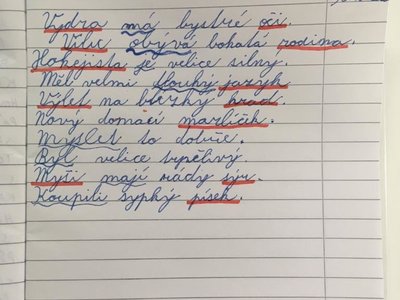 Vydra má bystré oči.
Vilu obývá bohatá rodina.
Hokejista je velice silný.
Měl velmi dlouhý jazyk.
Výlet na blízký hrad.
Nový domácí mazlíček.
Myslet to dobře.
Byl velice trpělivý.
Myši mají rády sýr.
Koupili sypký písek.